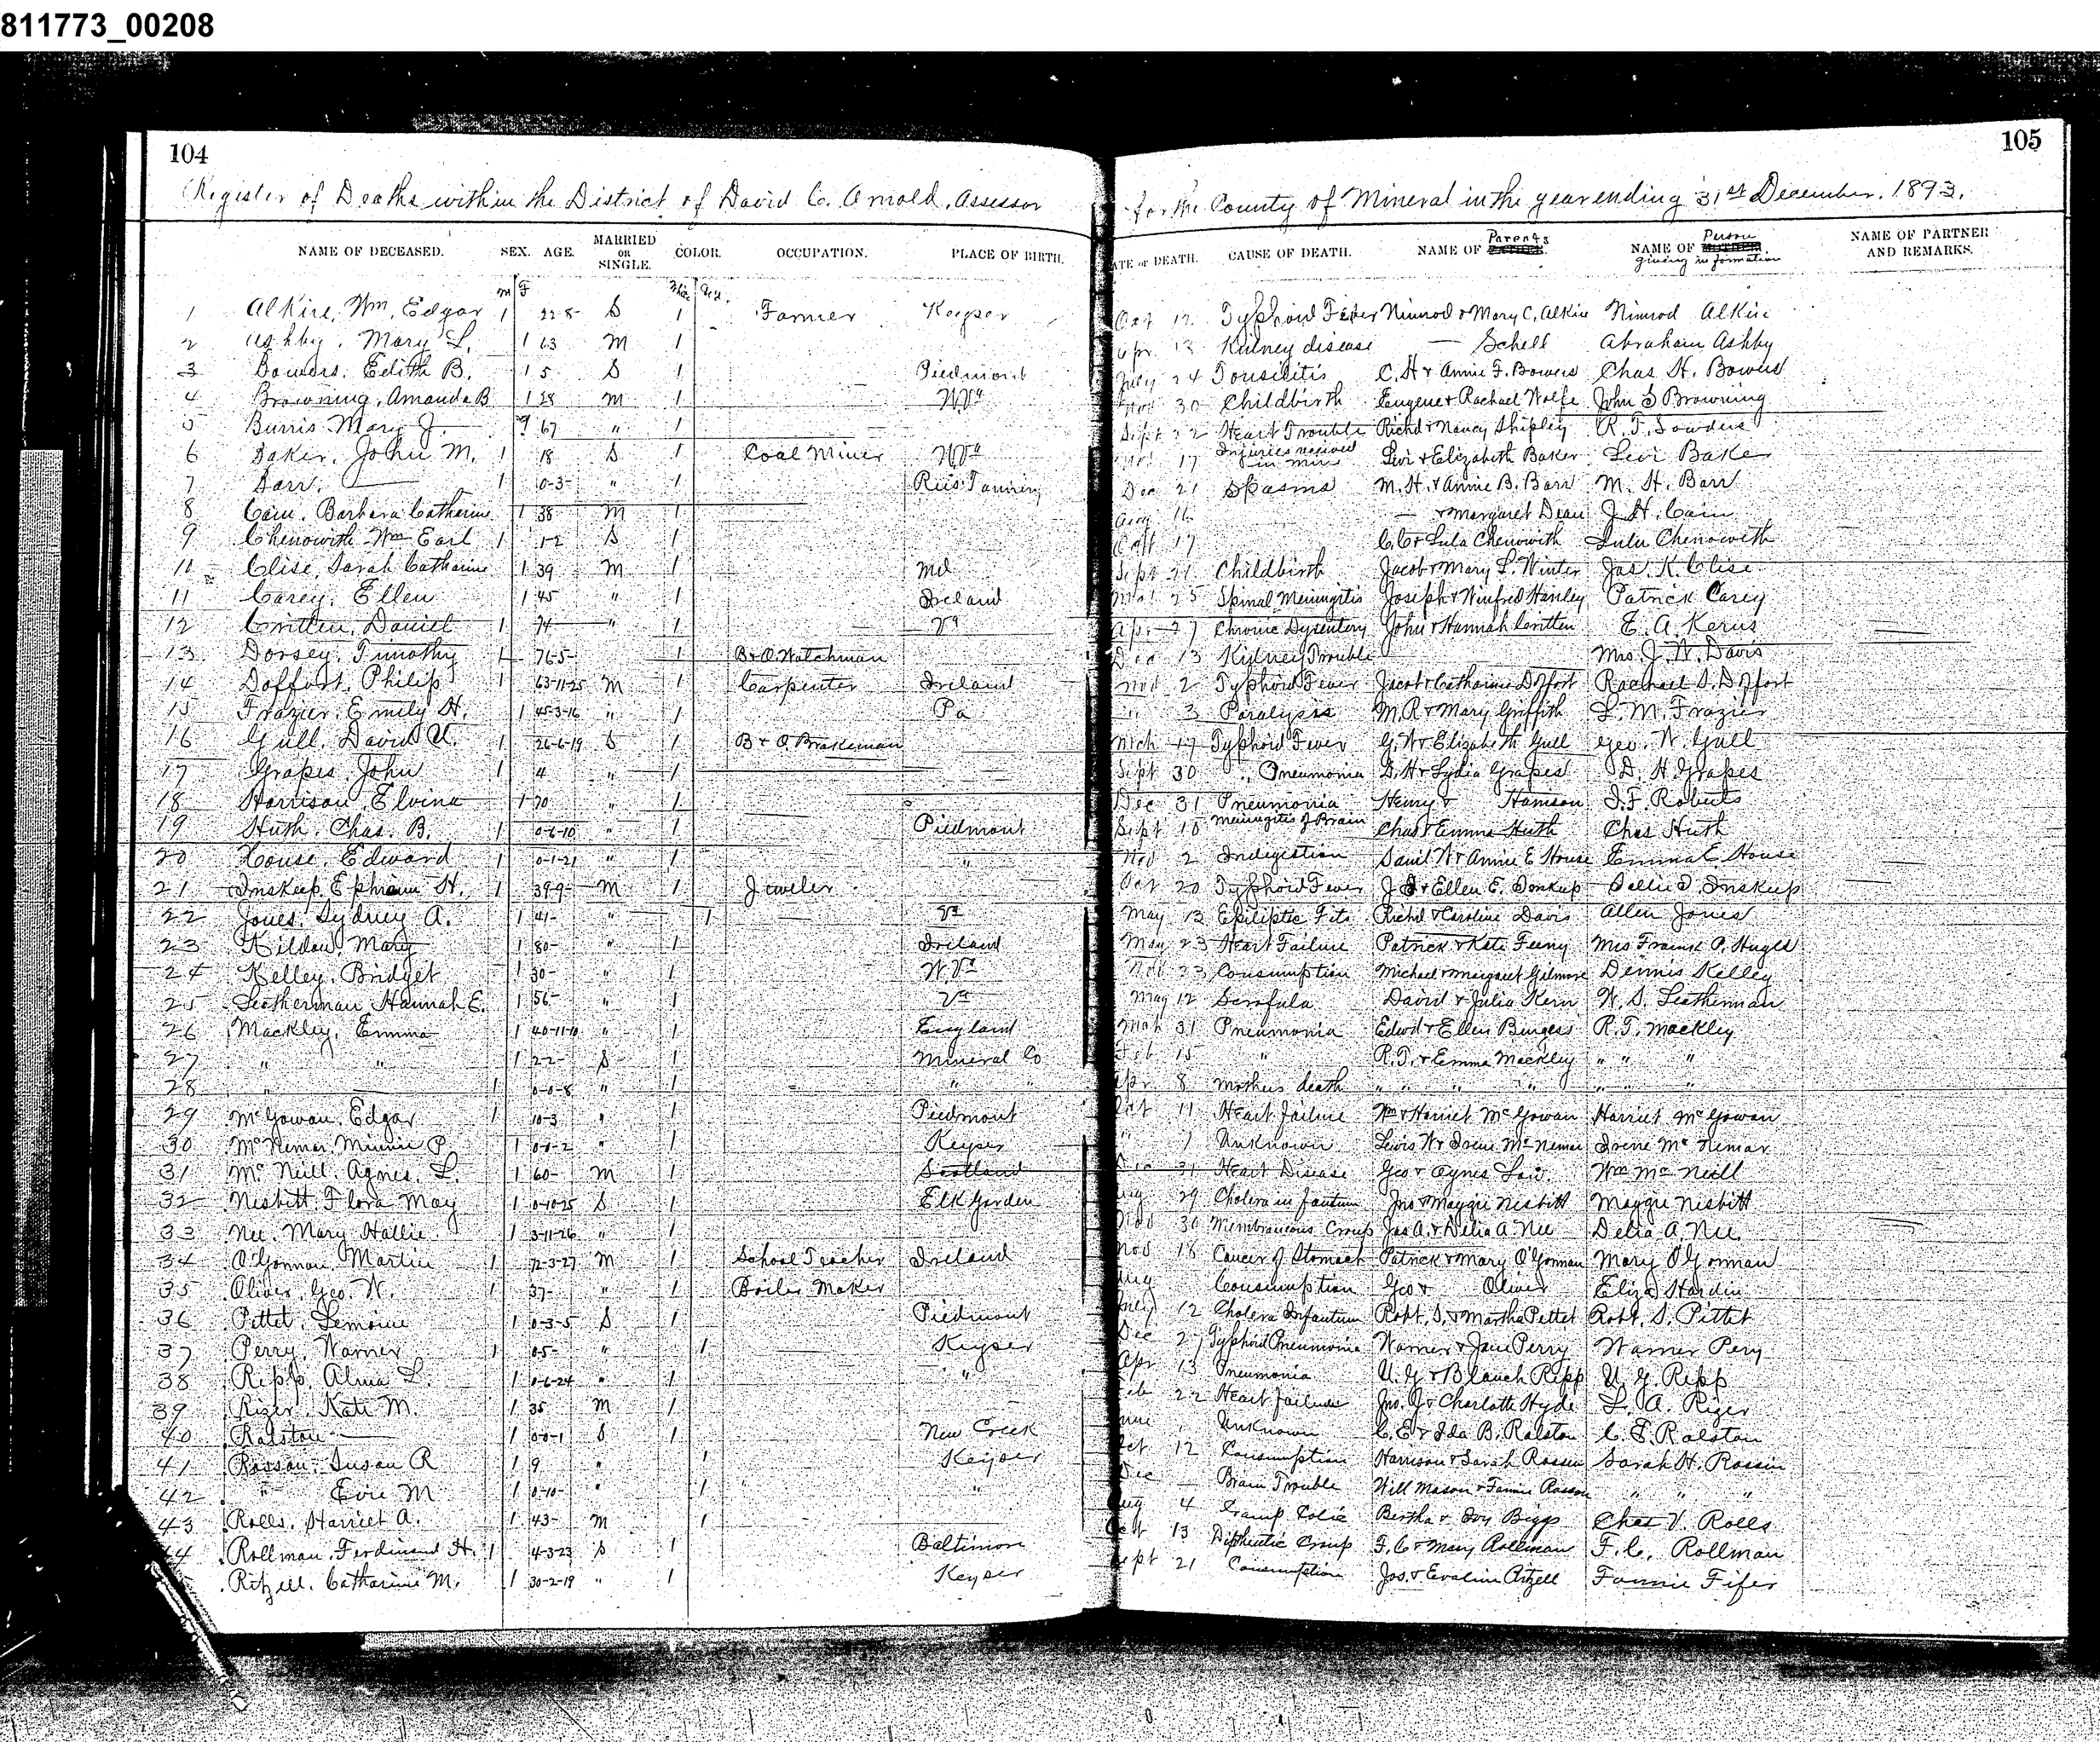 811773_00208
104
105
Register of Deaths within the District of David C. Arnold, Assessor for the County of Mineral in the year ending 31st December. 1893.
NAME OF DECEASED. SEX. AGE. MARRIED OR SINGLE. COLOR. OCCUPATION. PLACE OF BIRTH. DATE OF DEATH. CAUSE OF DEATH. NAME OF Parents. NAME OF Person giving information NAME OF PARTNER AND REMARKS.
M F White Col.
1 Alkire, Wm. Edgar 1 22-8- S 1 Farmer Keyser Oct 12 Typhoid Fever Nimrod & Mary C. Alkire Nimrod Alkire
2 Ashby, Mary L. 1 63 M 1 Apr 13 Kidney disease — Schell Abraham Ashby
3 Bowers, Edith B. 1 5 S 1 Piedmont July 24 Tonsilitis C. H & Annie F. Bowers Chas H. Bowers
4 Browning, Amanda B 1 28 M 1 W.Va 30 Childbirth Eugene & Rachael Wolfe John S Browning
5 Burris Mary J. 67 " 1 Sept 22 Heart Trouble Richd & Nancy Shipley R. T. Sowders
6 Baker, John M. 1 18 S 1 Coal Miner W.Va 17 Injuries received in mine Levi & Elizabeth Baker Levi Baker
7 Barr, — 1 0-3- " 1 Rees Tannery Dec 21 Spasms M. H. & Annie B. Barr M. H. Barr
8 Cain, Barbara Catherine 1 38 M 1 Aug 16 — & Margaret Dean J. H. Cain
9 Chenowith Wm Earl 1 1-2 S 1 17 C. C & Lula Chenowith Lulu Chenowith
10 Clise, Sarah Catharine 1 39 M 1 Md Sept 21 Childbirth Jacob & Mary L. Winter Jas. K. Clise
11 Carey, Ellen 1 45 " 1 Ireland 25 Spinal Meningitis Joseph & Winfred Hanley Patrick Carey
12 Critten, Daniel 1 74 " 1 Va Apr 27 Chronic Dysentery John & Hannah Critten E. A. Kerns
13 Dorsey, Timothy 1 76-5- 1 B & O Watchman Dec 13 Kidney Trouble Mrs. J. W. Davis
14 Doffort, Philip 1 63-11-25 M 1 Carpenter Ireland Nov 2 Typhoid Fever Jacob & Catharine Doffort Rachael S. Doffort
15 Frazier, Emily H. 1 45-3-16 " 1 Pa " 3 Paralysis M. R & Mary Griffith L. M. Frazier
16 Gull, David U. 1 26-6-19 S 1 B & O Brakeman Mch 17 Typhoid Fever G. W & Elizabeth Gull Geo. W. Gull
17 Grapes, John 1 4 " 1 Sept 30 " Pneumonia D. H & Lydia Grapes D. H Grapes
18 Harrison, Elvina 1 70 " 1 Dec 31 Pneumonia Henry & Harrison J. F. Roberts
19 Huth, Chas. B. 1 0-6-10 " 1 Piedmont Sept 10 Meningitis of Brain Chas & Emma Huth Chas Huth
20 House, Edward 1 0-1-21 " 1 " Nov 2 Indigestion Danil W & Annie E House Emma E House
21 Inskeep, Ephraim H. 1 39-9- M 1 Jeweler Oct 20 Typhoid Fever & Ellen E. Inskeep Sallie D. Inskeep
22 Jones, Sydney A. 1 41- " 1 Va May 13 Epileptic Fits Richd & Caroline Davis Allen Jones
23 Kildow, Mary 1 80- " 1 Ireland May 23 Heart Failure Patrick & Kate Feeny Mrs Frank P. Hughs
24 Kelley, Bridget 1 30- " 1 W.Va 23 Consumption Michael & Margaret Gilmore Dennis Kelley
25 Leatherman, Hannah E. 1 56- " 1 Va May 12 Scrofula David & Julia Kern W. S. Leatherman
26 Mackley, Emma 1 40-11-10 " 1 England Mch 31 Pneumonia Edwd & Ellen Burgess R. T. Mackley
27 " " 1 2-2- S 1 Mineral Co Feb 15 " R. T. & Emma Mackley " " "
28 " — 1 0-0-8 " 1 " " Apr 8 Mothers death " " " " " " "
29 McGowan, Edgar 1 10-3 " 1 Piedmont Oct 11 Heart failure Wm & Harriet McGowan Harriet McGowan
30 McNemar, Minnie P. 1 0-1-2 " 1 Keyser " 7 Unknown Lewis W & Irene McNemar Irene McNemar
31 McNeill, Agnes L. 1 60- M 1 Scotland Dec 31 Heart Disease Geo & Agnes Law Wm McNeill
32 Nesbitt, Flora May 1 0-10-25 S 1 Elk Garden Aug 29 Cholera infantum Jno & Maggie Nesbitt Maggie Nesbitt
33 Nee, Mary Hallie 1 3-11-26 " 1 Nov 30 Membraneous Croup Jas A. & Delia A. Nee Delia A. Nee
34 O'Gorman, Martin 1 72-3-27 M 1 School Teacher Ireland Nov 18 Cancer of Stomach Patrick & Mary O'Gorman Mary O'Gorman
35 Oliver, Geo. W. 1 37- " 1 Boiler Maker Aug Consumption Geo & Oliver Eliza Hardin
36 Pettet, Lemoine 1 0-3-5 S 1 Piedmont July 12 Cholera Infantum Robt. S. & Martha Pettet Robt. S. Pettet
37 Perry, Warner 1 0-5- " 1 Keyser Dec 27 Typhoid Pneumonia Warner & Jane Perry Warner Pery
38 Ripp, Alma L. 1 1-6-24 " 1 " Apr 13 Pneumonia U. G & Blanch Ripp U. G. Ripp
39 Rizer, Kate M. 1 35 M 1 Feb 22 Heart failure Jno. J & Charlotte Hyde L. A. Rizer
40 Ralston — 1 0-0-1 S 1 New Creek June Unknown C. E & Ida B. Ralston C. E. Ralston
41 Rosson, Susan R 1 9 " 1 Keyser Oct 12 Consumption Harrison & Sarah Rosson Sarah H. Rossin
42 " Evie M 1 0-10- " 1 " Dec — Brain Trouble Will Mason & Fannie Rosson " " "
43 Rolls, Harriet A. 1 43- M 1 Aug 4 Cramp Colic Bertha & Ivy Biggs Chas V. Rolls
44 Rollman, Ferdinand H. 1 4-3-23 S 1 Baltimore Oct 13 Diptheritic Croup F. C & Mary Rollman F. C. Rollman
Ritzell, Catharine M. 1 30-2-19 " 1 Keyser Sept 21 Consumption Jos. & Evaline Ritzell Fannie Fifer